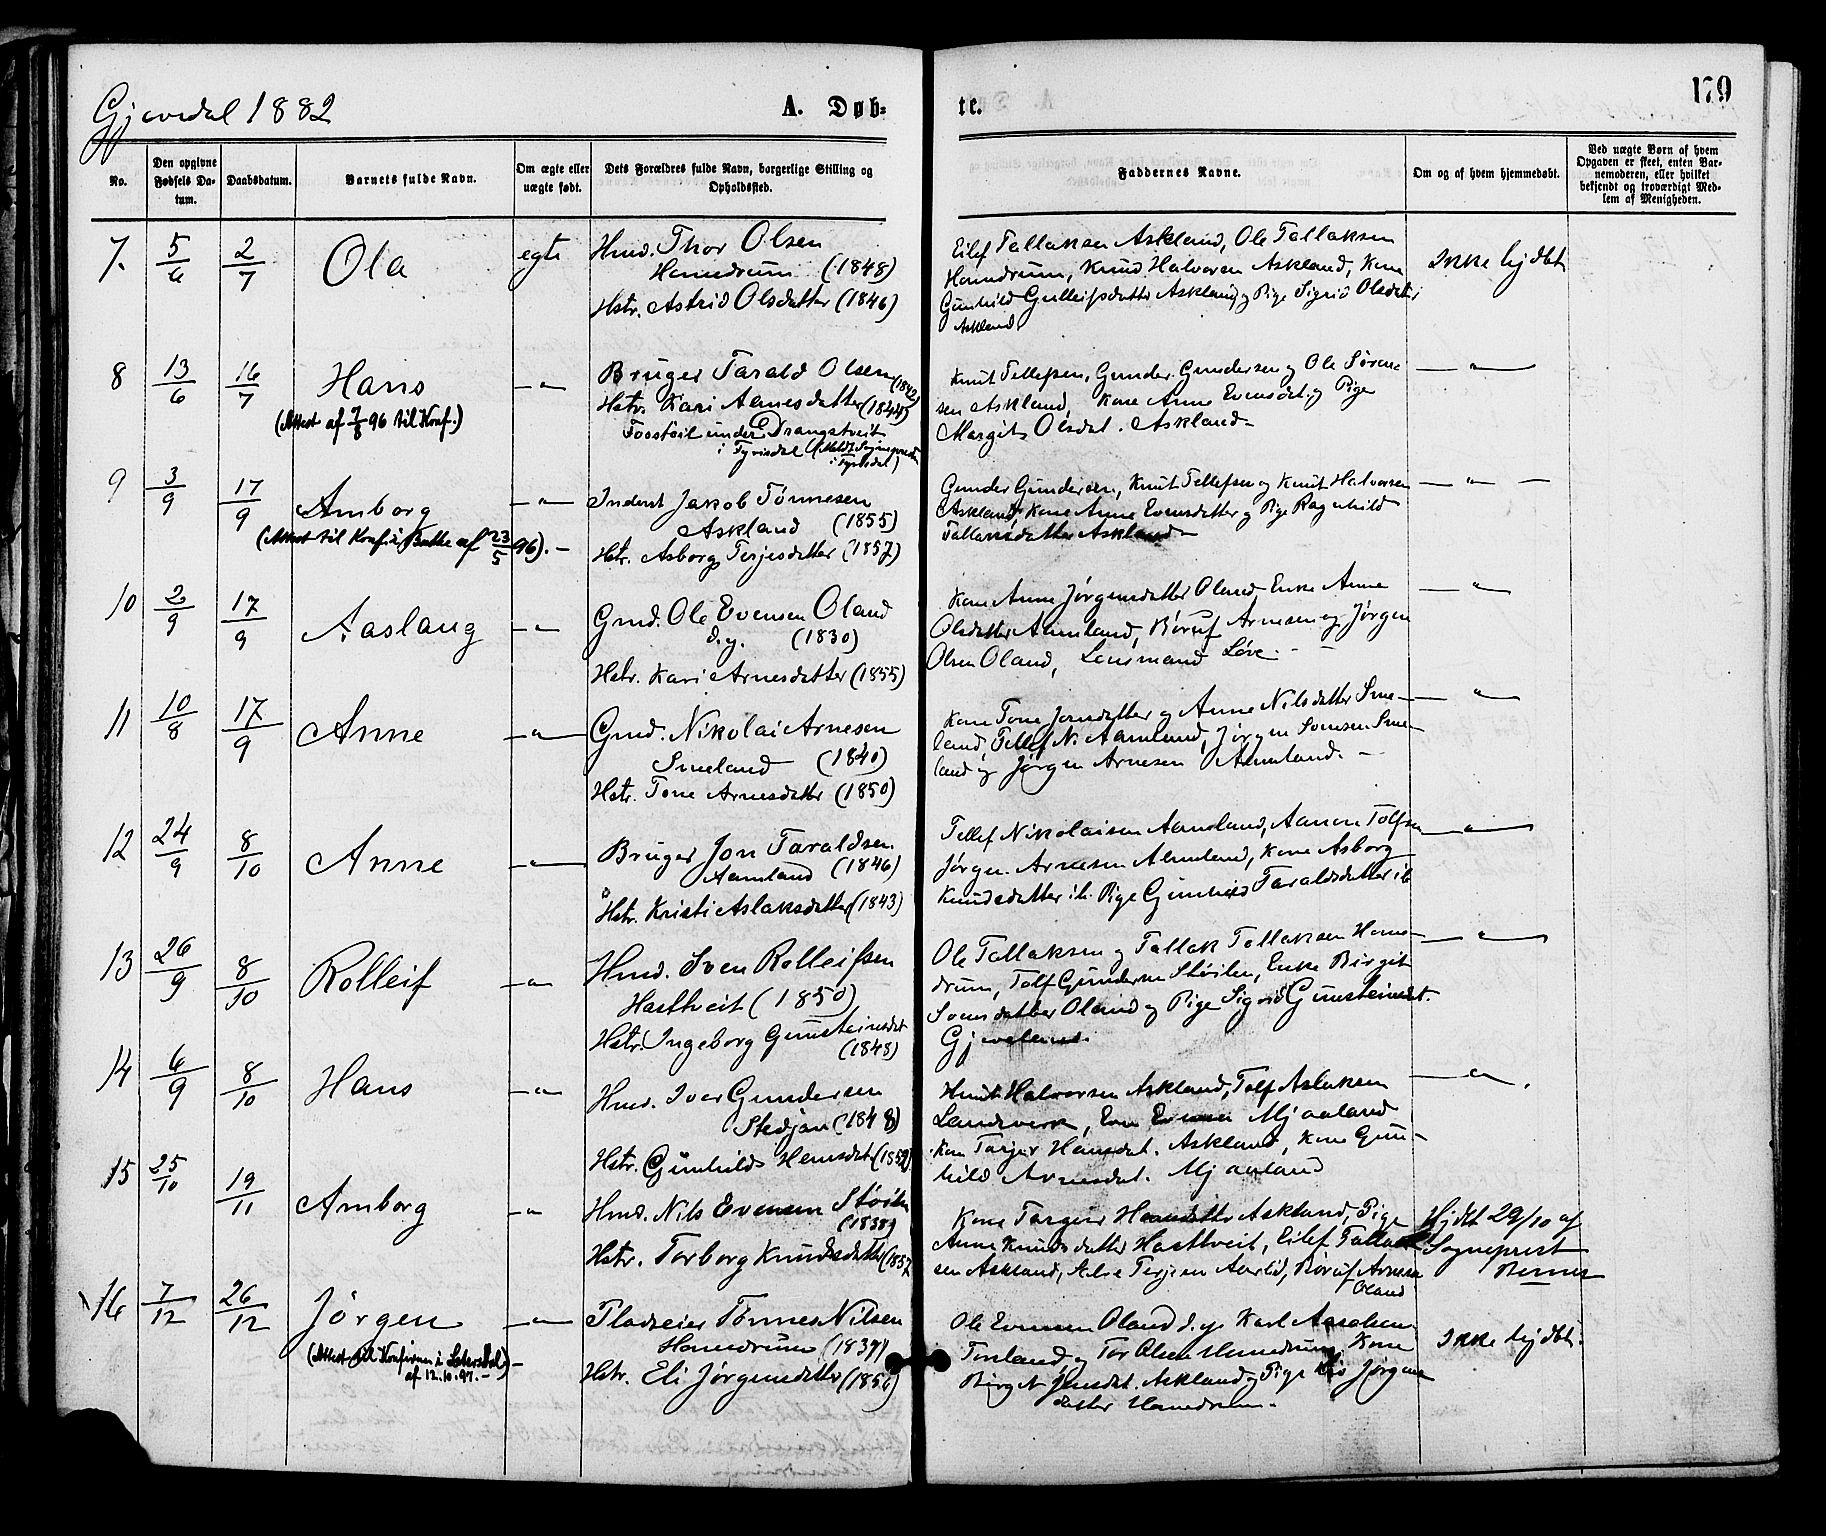 Gjøvdal 1882
A. Døb-
te.
179
No.
Den opgivne Fødsels Da-tum.
Daabsdatum.
Barnets fulde Navn.
Om ægte eller uægte født.
Dets Forældres fulde Navn, borgerlige Stilling og Opholdssted.
Faddernes Navne.
Om og af hvem hjemmedøbt.
Ved uægte Børn af hvem Opgaven er skeet, enten Bar-nemoderen, eller hvilket bekjendt og troværdigt Med-lem af Menigheden.
7. 5/6 2/7 Ola egte
Hmd. Thor Olsen
Homdrum (1848)
Hstr. Astrid Olsdatter (1846)
Eilef Tallaksen Askland, Ole Tallaksen
Homdrum, Knud Halvorsen Askland, Kone
Gunhild Gulleifsdatter Askland og Pige Sigrid Olsdatter
Askland
Ikke hjdbt
8 13/6 16/7 Hans — " —
(Attest af 7/8 96 til Konf.)
Bruger Tarald Olsen (1842)
Hstr. Kari Aanesdatter (1844)
under Drangstveit
i Tyrisdal
i Tyrisdal)
Knut Tellefsen, Gunder Gundersen og Ole Søren-
sen Askland, Kone Anne Evensdt. og Pige
Margit Olsdat. Askland
— " —
9 3/9 17/9 Amborg — " —
(Attest til Konf. i af 23/5 96). —
Inderst Jakob Tønnesen
Askland (1855)
Hstr. Asborg Terjesdatter (1857)
Gunder Gundersen, Knut Tellefsen og Knut Halvorsen
Askland, Kone Anne Evensdatter og Pige Ragnhild
Tallaksdatter Askland
— " —
10 2/9 17/9 Aaslaug — " —
Gmd. Ole Evensen Oland
d.y. (1830)
Hstr. Kari Arnesdatter (1855)
Kone Anne Jørgensdatter Oland, Enke Anne
Olsdatter Aamland, Børuf Arnesen og Jørgen
Olsen Oland, Lensmand Løve. —
— " —
11 10/8 17/9 Anne — " —
Gmd. Nikolai Arnesen
Smeland (1840)
Hstr. Tone Arnesdatter (1850)
Kone Tone Jonsdatter og Anne Nilsdatter Sme-
land, Tellef N. Aamland, Jørgen Svensen Sme-
land og Jørgen Arnesen Aamland. —
— " —
12 24/9 8/10 Anne — " —
Bruger Jon Taraldsen
Aamland (1846)
Hstr. Kristi Aslaksdatter (1843)
Tellef Nikolaisen Aamland, Aanon Tolfsen
Jørgen Arnesen Aamland, Kone Asborg
Knudsdatter ib. Pige Gunhild Taraldsdatter ib
— " —
13 26/9 8/10 Rolleif — " —
Hmd. Sven Rolleifsen
Hasttveit (1850)
Hstr. Ingeborg Gunsteinsdat
(1848)
Ole Tallaksen og Tallak Tallaksen Hom-
drum, Tolf Gundersen Støilen, Enke Birgit
Svensdatter Oland og Pige Sigrid Gunsteinsdt.
Gjøveland.
— " —
14 6/9 8/10 Hans — " —
Hmd. Iver Gundersen
Stedjan (1848)
Hstr. Gunhild Hansdat (1852)
Knut Halvorsen Askland, Tolf Aslaksen
Landsverk, Even Evensen Mjaaland
Kone Torjer Hansdat. Askland, Kone Gun-
hild Arnesdat. Mjaaland
— " —.
15 25/10 19/11 Amborg — " —
Hmd. Nils Evensen Støilen
(1838)
Hstr. Torborg Knudsdatter (1857)
Kone Torgjer Hansdatter Askland, Pige
Anne Knudsdatter Hasttveit, Eilef Tallak-
sen Askland, Terjesen Aarlid, Børuf Arnesen
Oland
Hjdt 29/10 af
Sogneprest
Berner
16 7/12 26/12 Jørgen — " —
(Attest til Konfirm. i Setersdal) —
af 12.10.97. —
Pladseier Tønnes Nilsen
Homdrum (1839)
Hstr. Eli Jørgensdatter (1856)
Ole Evensen Oland d.y. Karl
Tonland og Tor Olsen Homdrum, Kone
Birgit Jensdat. Askland og Pige Jørgens-
datter Homdrum.
Ikke hjdbt.